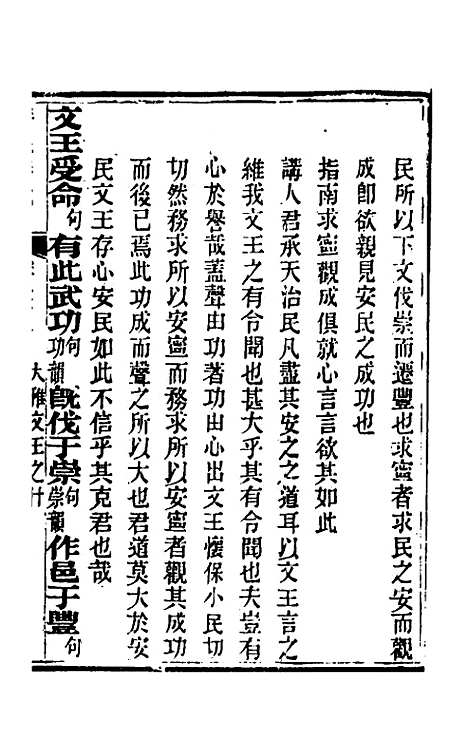 民所以下文伐崇而遷豐也求寧者求民之安而觀
成卽欲親見安民之成功也
指南求寧觀成俱就心言言欲其如此
講人君承天治民凡盡其安之之道耳以文王言之
維我文王之有令聞也甚大乎其有令聞也夫豈有
心於譽哉蓋聲由功著功由心出文王懷保小民切
切然務求所以安寧而務求所以安寧者觀其成功
而後已焉此功成而聲之所以大也君道莫大於安
民文王存心安民如此不信乎其克君也哉
文王受命句有此武功句功韻旣伐于崇句崇韻作邑于豐句
大雅文王之什